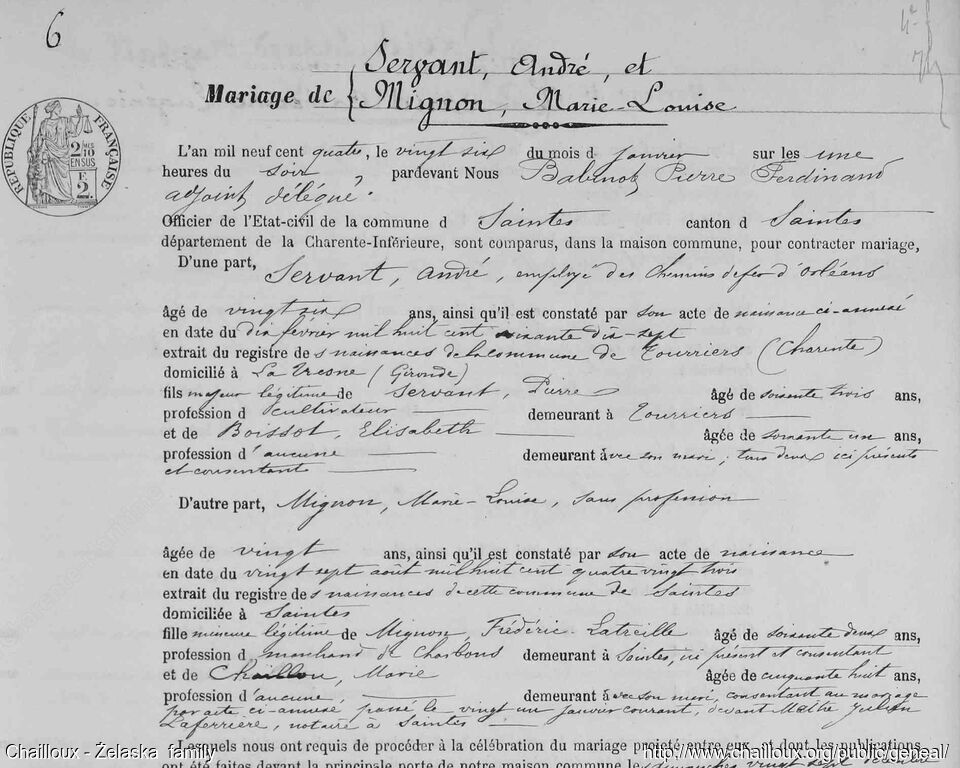 6
Servant, André, et
Mariage de { Mignon, Marie-Louise
RÉPUBLIQUE FRANÇAISE
2 MES
10
EN SUS
F
2.
L'an mil neuf cent quatre, le vingt six du mois d janvier sur les une
heures du soir, pardevant Nous Babinot Pierre Ferdinand
adjoint délégué
Officier de l'Etat-civil de la commune d Saintes canton d Saintes
département de la Charente-Inférieure, sont comparus, dans la maison commune, pour contracter mariage,
D'une part, Servant, André, employé des chemins de fer d'Orléans
âgé de vingt six ans, ainsi qu'il est constaté par son acte de naissance ci-annexé
en date du dix février mil huit cent soixante dix-sept
extrait du registre des naissances de la commune de Tourriers (Charente)
domicilié à La Tresne (Gironde)
fils majeur légitime de Servant, Pierre âgé de soixante trois ans,
profession d cultivateur demeurant à Tourriers
et de Boissot, Elisabeth âgée de soixante un ans,
profession d'aucune demeurant avec son mari, tous deux ici présents
et consentants
D'autre part, Mignon, Marie-Louise, sans profession
âgée de vingt ans, ainsi qu'il est constaté par son acte de naissance
en date du vingt sept août mil huit cent quatre vingt trois
extrait du registre des naissances de cette commune de Saintes
domiciliée à Saintes
fille mineure légitime de Mignon, Frédéric-Latreille âgé de soixante deux ans,
profession d marchand de charbons demeurant à Saintes, ici présent et consentant
et de Chaillou, Marie âgée de cinquante huit ans,
profession d'aucune demeurant avec son mari, consentant au mariage
par acte ci-annexé passé le vingt un janvier courant, devant Maître Julien
Laferrière, notaire à Saintes
Lesquels nous ont requis de procéder à la célébration du mariage projeté entre eux, et dont les publications
ont été faites devant la principale porte de notre maison commune les dimanches vingt sept
Chailloux - Żelaska family
http://www.chailloux.org/public/geneal/